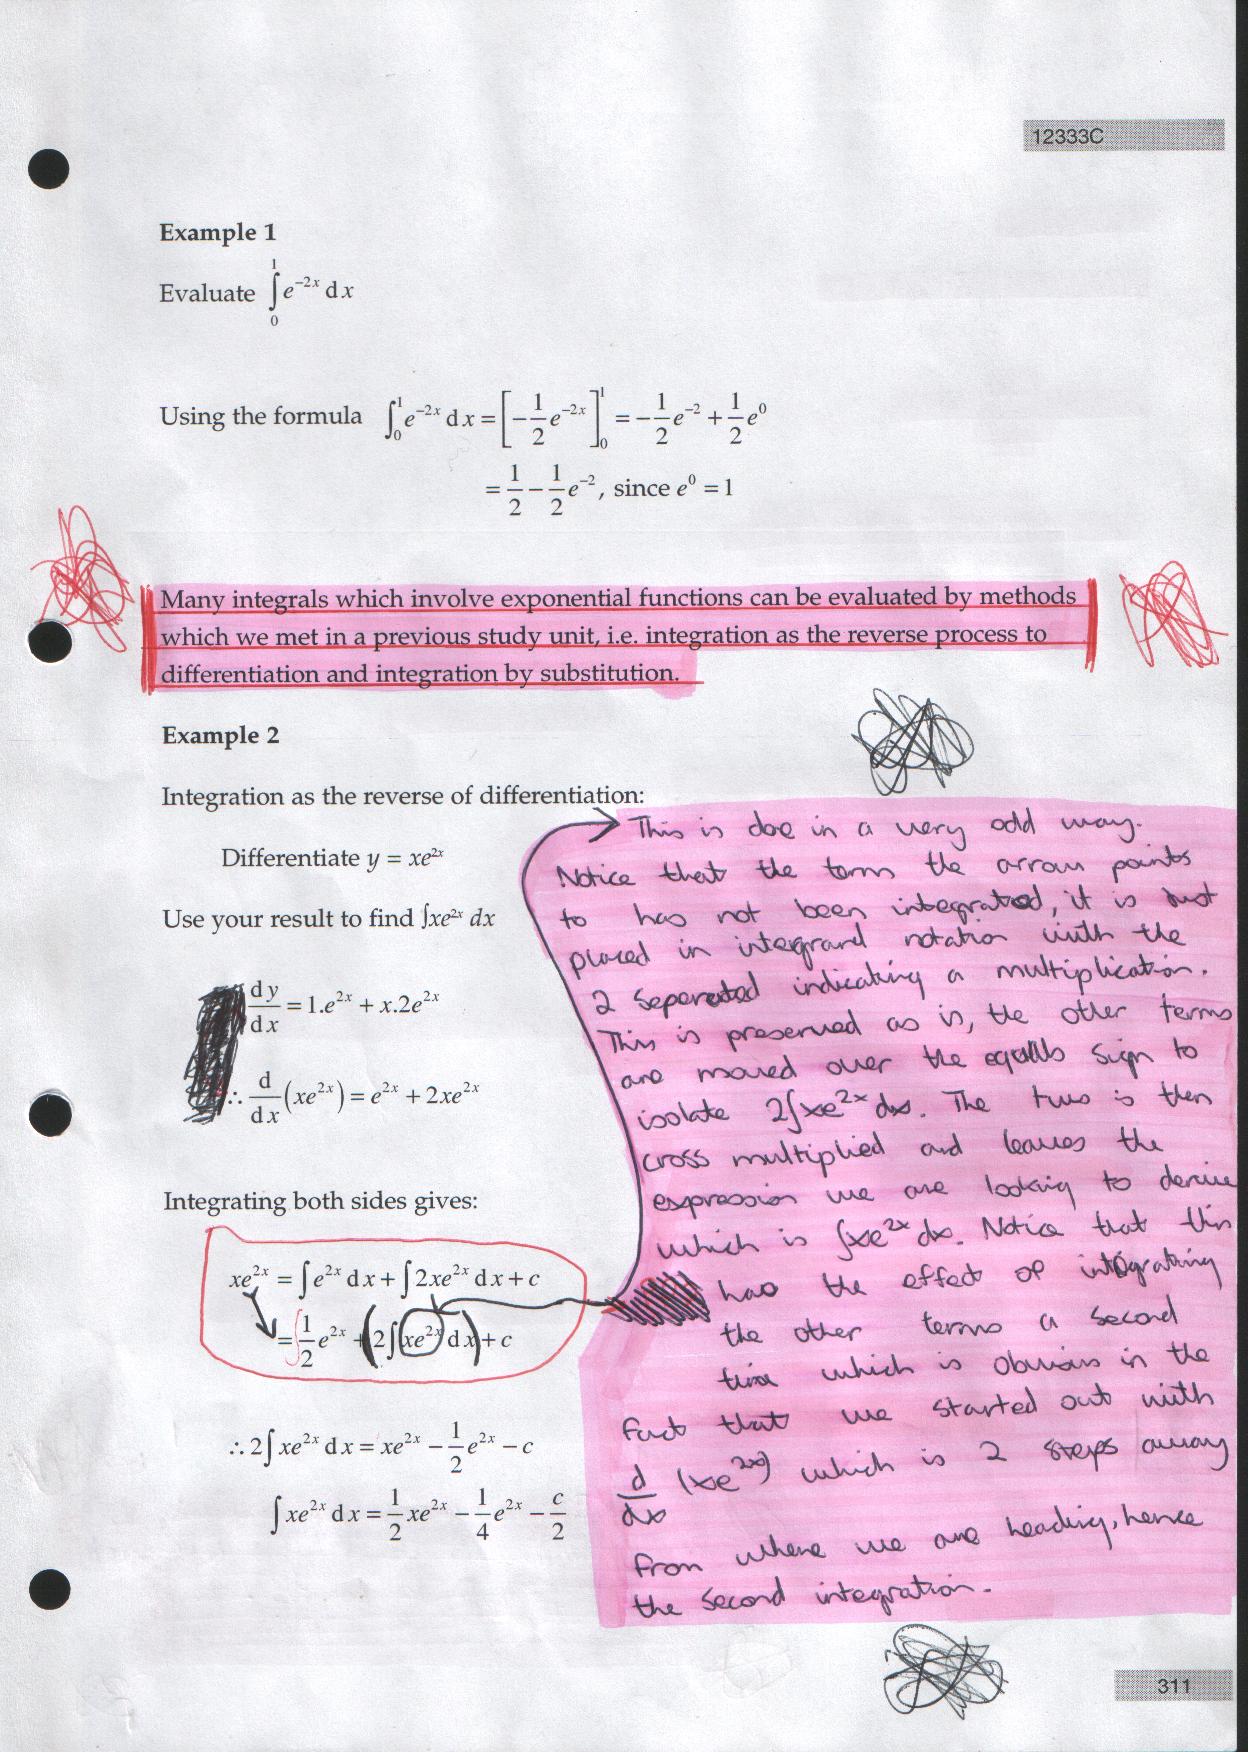 12333C
Example 1
Evaluate ∫₀¹ e⁻²ˣ dx
Using the formula ∫₀¹ e⁻²ˣ dx = [−1/2 e⁻²ˣ]₀¹ = −1/2 e⁻² + 1/2 e⁰
= 1/2 − 1/2 e⁻², since e⁰ = 1
Many integrals which involve exponential functions can be evaluated by methods
which we met in a previous study unit, i.e. integration as the reverse process to
differentiation and integration by substitution.
Example 2
Integration as the reverse of differentiation:
Differentiate y = xe²ˣ
Use your result to find ∫xe²ˣ dx
dy/dx = 1.e²ˣ + x.2e²ˣ
∴ d/dx (xe²ˣ) = e²ˣ + 2xe²ˣ
Integrating both sides gives:
xe²ˣ = ∫e²ˣ dx + ∫2xe²ˣ dx + c
= 1/2 e²ˣ + (2∫xe²ˣ dx) + c
∴ 2∫xe²ˣ dx = xe²ˣ − 1/2 e²ˣ − c
∫xe²ˣ dx = 1/2 xe²ˣ − 1/4 e²ˣ − c/2
This is doe in a very odd way.
Notice that the term the arrow points
to has not been integrated, it is just
placed in integrand notation with the
2 seperated indicating a multiplication.
This is preserved as is, the other terms
are moved over the equals sign to
isolate 2∫xe²ˣ dx. The two is then
cross multiplied and leaves the
expression we are looking to derive
which is ∫xe²ˣ dx. Notice that this
has the effect of integrating
the other terms a second
time which is obvious in the
fact that we started out with
d/dx (xe²ˣ) which is 2 steps away
from where we are heading, hence
the second integration.
311